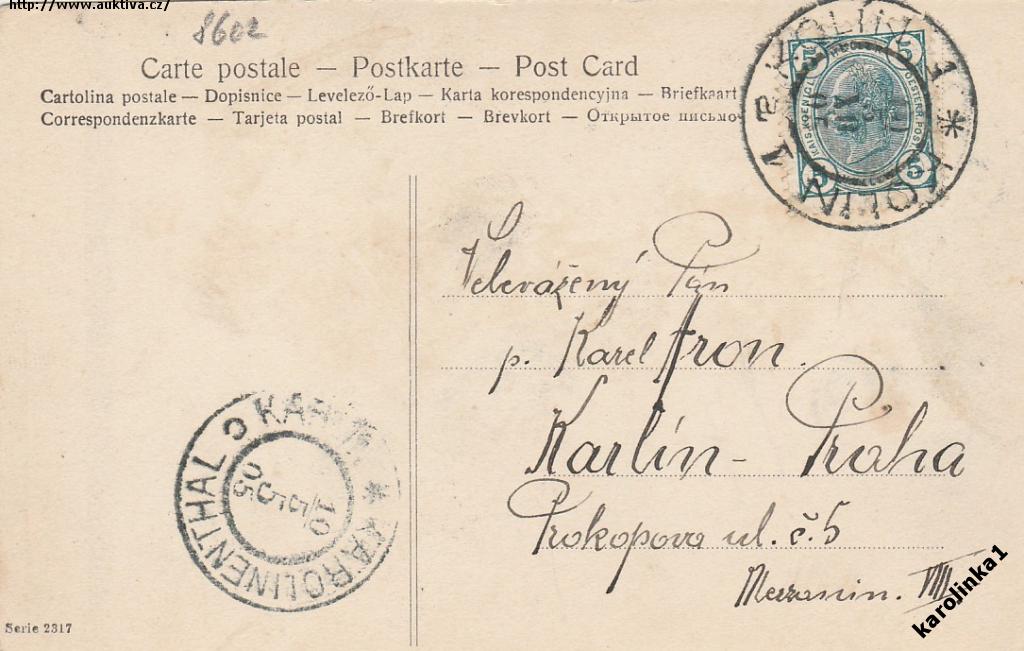 http://www.auktiva.cz/
8602
Carte postale — Postkarte — Post Card
Cartolina postale — Dopisnice — Levelező-Lap — Karta korespondencyjna — Briefkaart
Correspondenzkarte — Tarjeta postal — Brefkort — Brevkort — Открытое письмо
KOLÍN 1
KOLIN 1
5 5
5 5
Velevážený Pán
p. Karel Fron.
Karlín - Praha
Prokopova ul. č. 5
Mezzanin. VIII
KAROLINENTHAL
10
5
05
Serie 2317
karolinka1